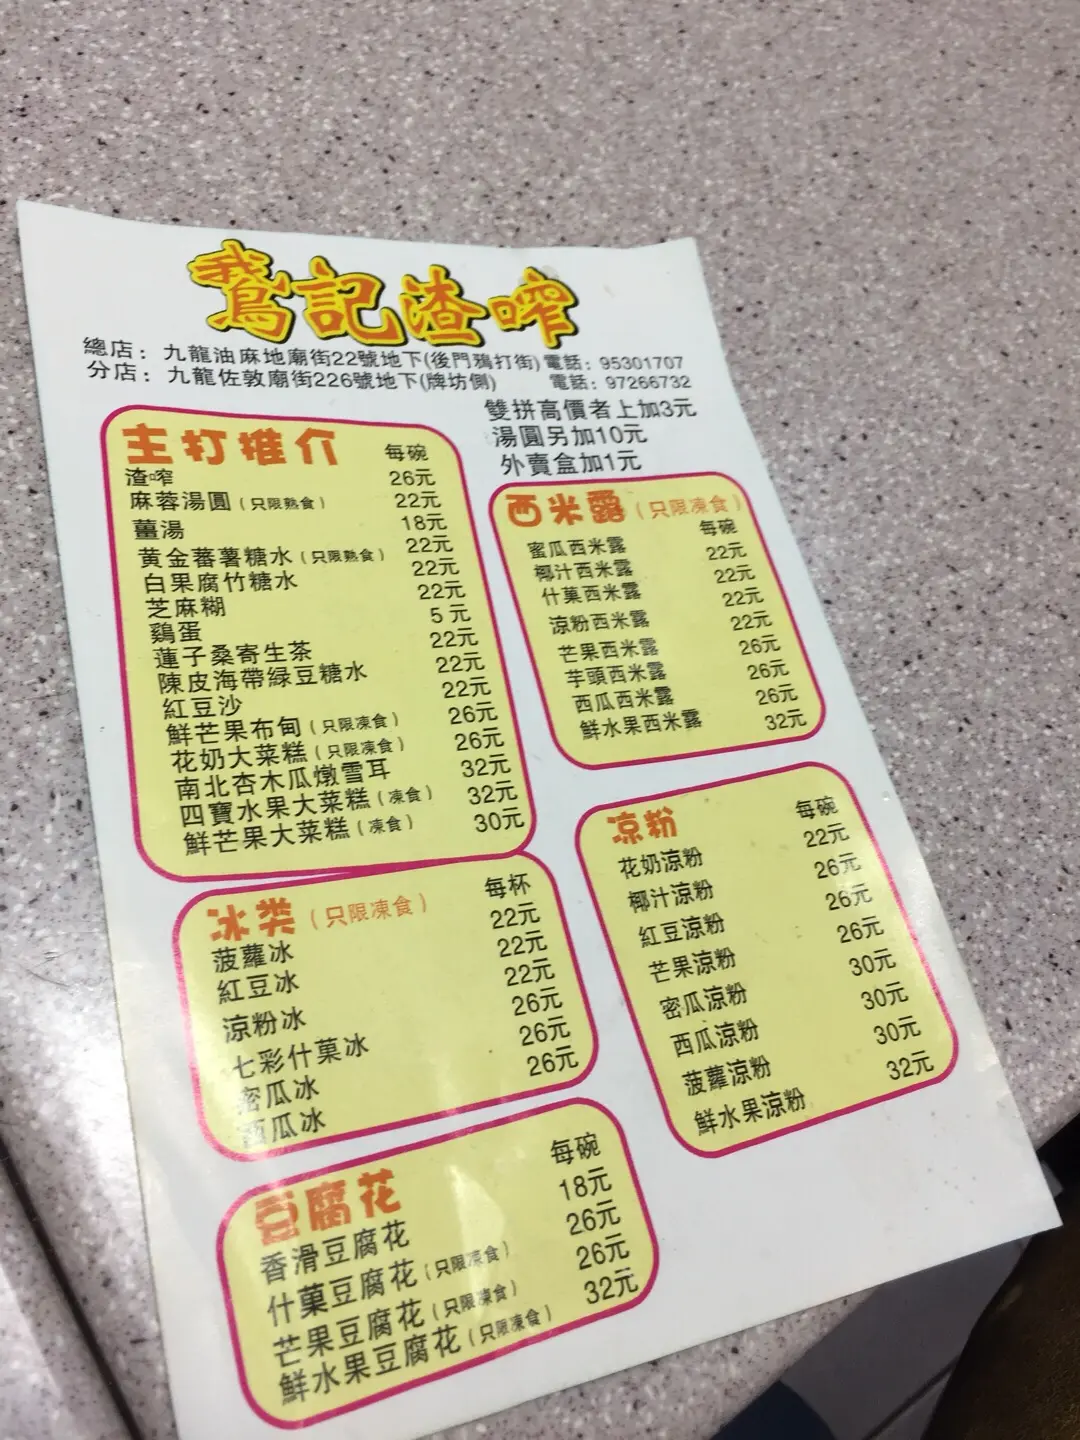 鵝記渣咋
總店：九龍油麻地廟街22號地下(後門鴉打街)電話：95301707
分店：九龍佐敦廟街226號地下(牌坊側) 電話：97266732
雙拼高價者上加3元
湯圓另加10元
外賣盒加1元
主打推介 每碗
渣咋 26元
麻蓉湯圓(只限熟食) 22元
薑湯 18元
黃金蕃薯糖水(只限熟食) 22元
白果腐竹糖水 22元
芝麻糊 22元
鷄蛋 5元
蓮子桑寄生茶 22元
陳皮海帶綠豆糖水 22元
紅豆沙 22元
鮮芒果布甸(只限凍食) 26元
花奶大菜糕(只限凍食) 26元
南北杏木瓜燉雪耳 32元
四寶水果大菜糕(凍食) 32元
鮮芒果大菜糕(凍食) 30元
西米露(只限凍食)
每碗
蜜瓜西米露 22元
椰汁西米露 22元
什菓西米露 22元
涼粉西米露 22元
芒果西米露 26元
芋頭西米露 26元
西瓜西米露 26元
鮮水果西米露 32元
冰类(只限凍食) 每杯
菠蘿冰 22元
紅豆冰 22元
涼粉冰 22元
七彩什菓冰 26元
密瓜冰 26元
西瓜冰 26元
凉粉 每碗
花奶涼粉 22元
椰汁涼粉 26元
紅豆涼粉 26元
芒果涼粉 26元
密瓜涼粉 30元
西瓜涼粉 30元
菠蘿涼粉 30元
鮮水果涼粉 32元
豆腐花 每碗
香滑豆腐花 18元
什菓豆腐花(只限凍食) 26元
芒果豆腐花(只限凍食) 26元
鮮水果豆腐花(只限凍食) 32元